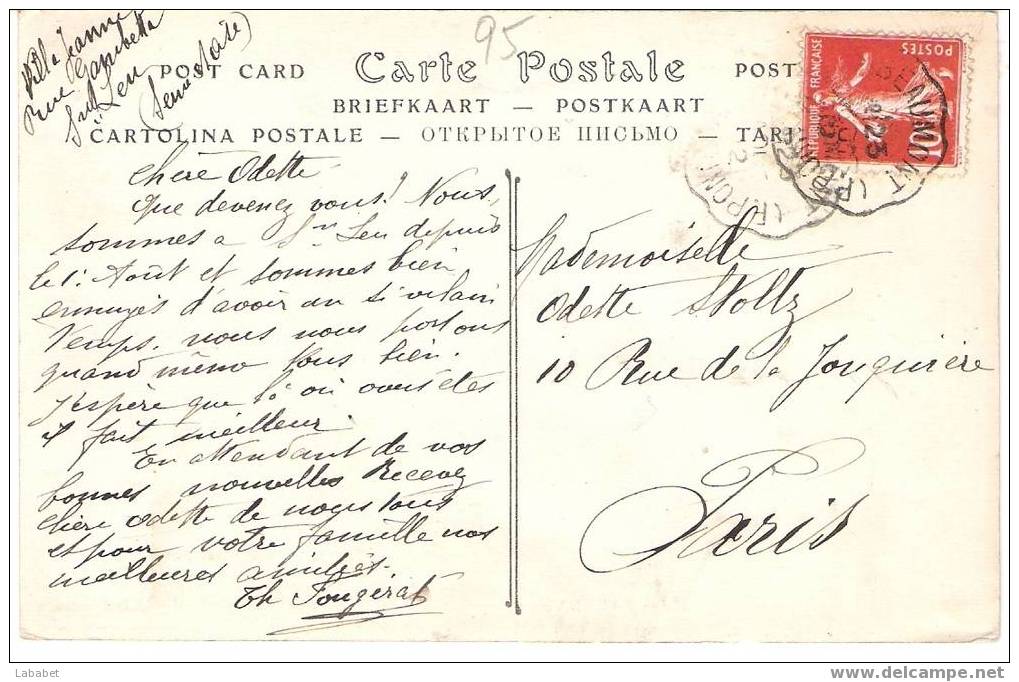 Villa Jeanne
Rue Gambetta
St Leu
(Seine et Oise)
95
POST CARD Carte Postale POST
BRIEFKAART - POSTKAART
CARTOLINA POSTALE - ОТКРЫТОЕ ПИСЬМО - TARJ
POSTES
RÉPUBLIQUE FRANÇAISE
10
BEAUMONT (
Chère Odette
Que devenez vous? Nous
sommes à St Leu depuis
le 1: Août et sommes bien
ennuyés d'avoir un si vilain
temps. nous nous portons
quand même tous bien.
J'espère que là où vous êtes
il fait meilleur
En attendant de vos
bonnes nouvelles Recevez
chère Odette de nous tous
et pour votre famille nos
meilleures amitiés.
Th Fougerat
Mademoiselle
Odette Stoltz
10 Rue de la Jonquière
Paris
Lababet
www.delcampe.net